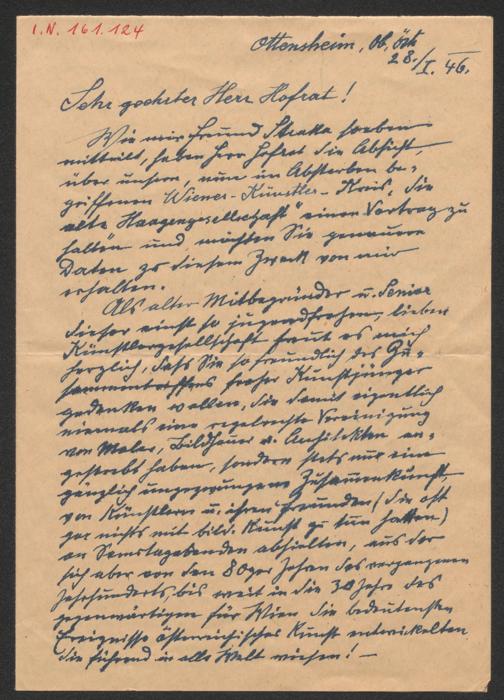 I.N. 161.124
Ottensheim, Ob. Öst
28./I. 46.
Sehr geehrter Herr Hofrat!
Wie mir Freund Straka soeben
mitteilt, haben Herr Hofrat die Absicht,
über unsern, nun im Absterben be-
griffenen Wiener-Künstler-Kreis, die
alte "Haagengesellschaft" einen Vortrag zu
halten und möchten Sie genauere
Daten zu diesem Zweck von mir
erhalten.
Als alter Mitbegründer u. Senior
dieser einst so jugendfrohen, lieben
Künstlergesellschaft freut es mich
herzlich, daß Sie so freundlich des Zu-
sammentreffens froher Kunstjünger
gedenken wollen, die damit eigentlich
niemals eine regelrechte Vereinigung
von Maler, Bildhauer u. Architekten an-
gestrebt haben, sondern stets nur eine
gänzlich ungezwungene Zusammenkunft,
von Künstlern u. ihren Freunden (die oft
gar nichts mit bild. Kunst zu tun hatten)
an Samstagabenden abhielten, aus der
sich aber von den 80ger Jahren des vergangenen
Jahrhunderts bis weit in die 30 Jahre des
gegenwärtigen für Wien die bedeutensten
Ereignisse österreichischer Kunst entwickelten
die führend in alle Welt wiesen! —